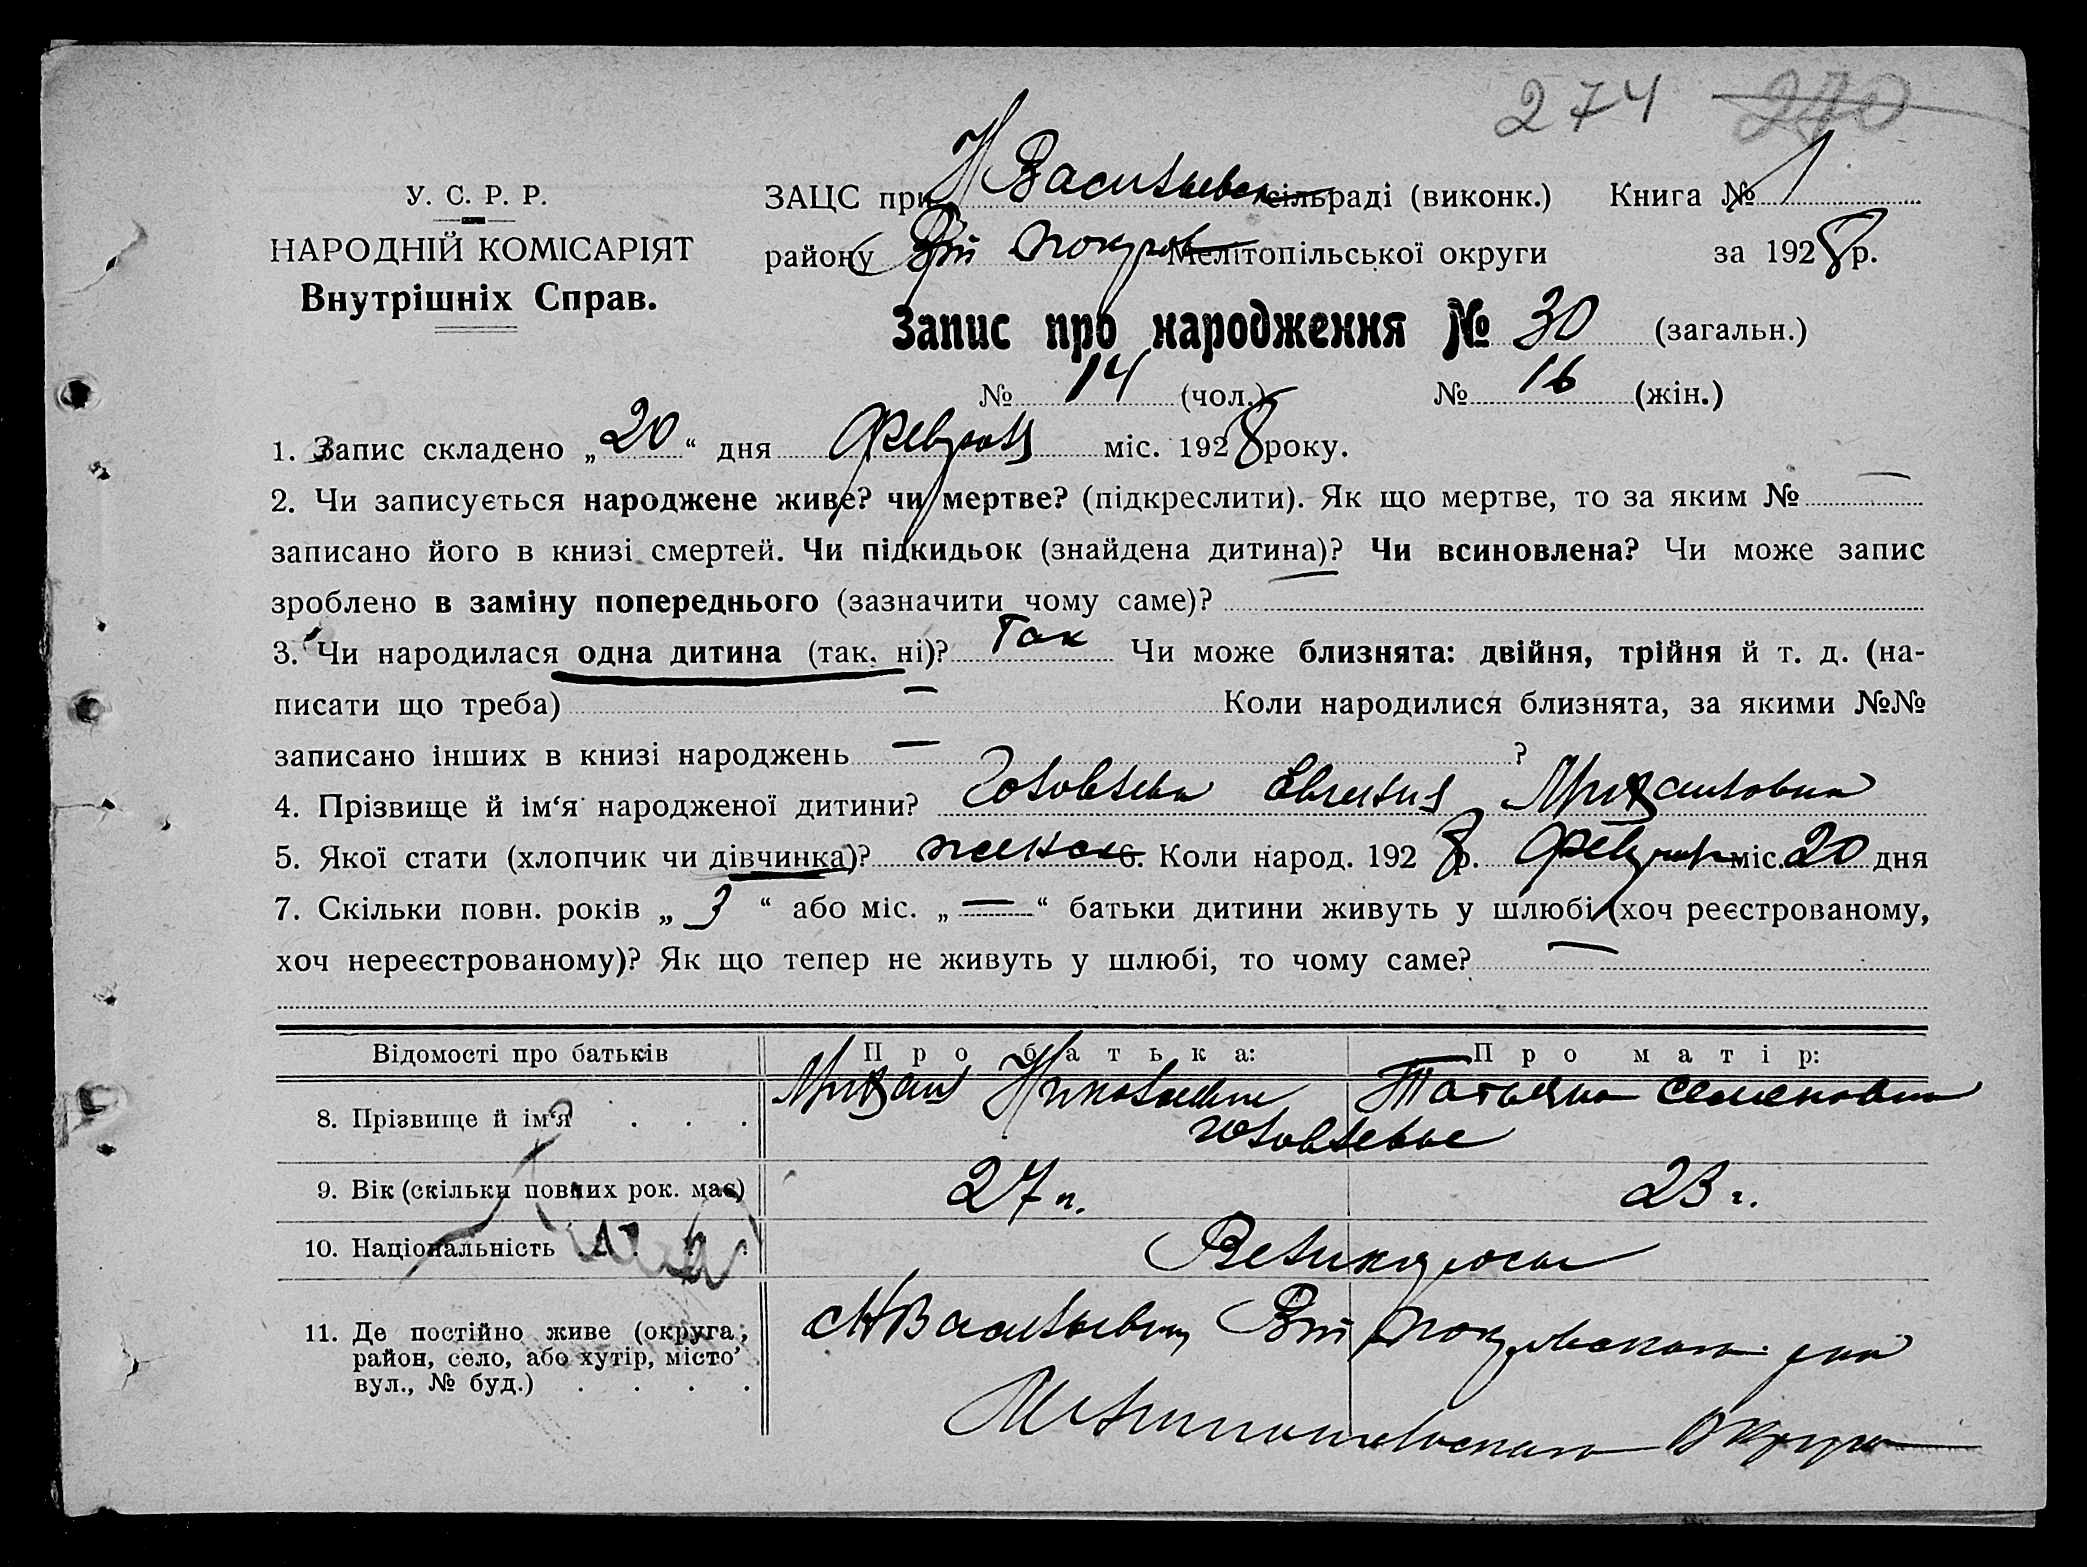 274 270
У. С. Р. Р.
НАРОДНІЙ КОМІСАРІЯТ
Внутрішніх Справ.
ЗАЦС при Н Васильевск сільраді (виконк.) Книга № 1
району Вт Покров Мелітопільської округи за 1928 р.
Запис про народження № 30 (загальн.)
№ 14 (чол.) № 16 (жін.)
1. Запис складено „20“ дня Февраля міс. 1928 року.
2. Чи записується народжене живе? чи мертве? (підкреслити). Як що мертве, то за яким № —
записано його в книзі смертей. Чи підкидьок (знайдена дитина)? Чи всиновлена? Чи може запис
зроблено в заміну попереднього (зазначити чому саме)?
3. Чи народилася одна дитина (так, ні)? Так Чи може близнята: двійня, трійня й т. д. (на-
писати що треба) — Коли народилися близнята, за якими №№
записано інших в книзі народжень — ?
4. Прізвище й ім‘я народженої дитини? Головлева
5. Якої стати (хлопчик чи дівчинка)? женск 6. Коли народ. 1928 р. Февраля міс. 20 дня
7. Скільки повн. років „3“ або міс. „—“ батьки дитини живуть у шлюбі (хоч реєстрованому,
хоч нереєстрованому)? Як що тепер не живуть у шлюбі, то чому саме? —
Відомості про батьків Про батька: Про матір:
8. Прізвище й ім‘я . . . Николаевич Татьяна Семеновна
9. Вік (скільки повних рок. має) 27 л. 23 г.
10. Національність . . . Великоросы
11. Де постійно живе (округа, район, село, або хутір, місто вул., № буд.) . . . . с Н Васильевка Вт Покровского р-на
Мелитопольского Округа